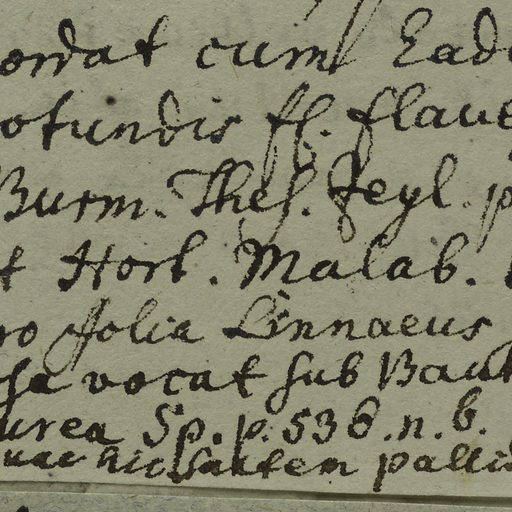 ordat cum Ead
otundis fl. flave
Burm. Thes. Zeyl. p
t Hort. Malab.
ro folia Linnaeus
sa vocat sub Bauh
urea Sp. p. 536. n. 6.
hic saltem pallid